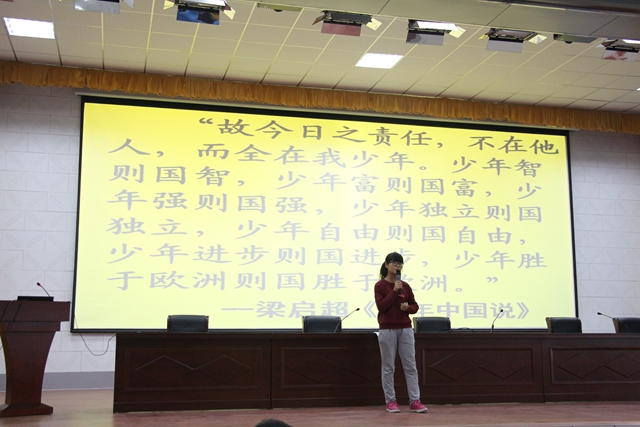 “故今日之责任，不在他
人，而全在我少年。少年智
则国智，少年富则国富，少
年强则国强，少年独立则国
独立，少年自由则国自由，
少年进步则国进步，少年胜
于欧洲则国胜于欧洲。”
—梁启超《 年中国说》